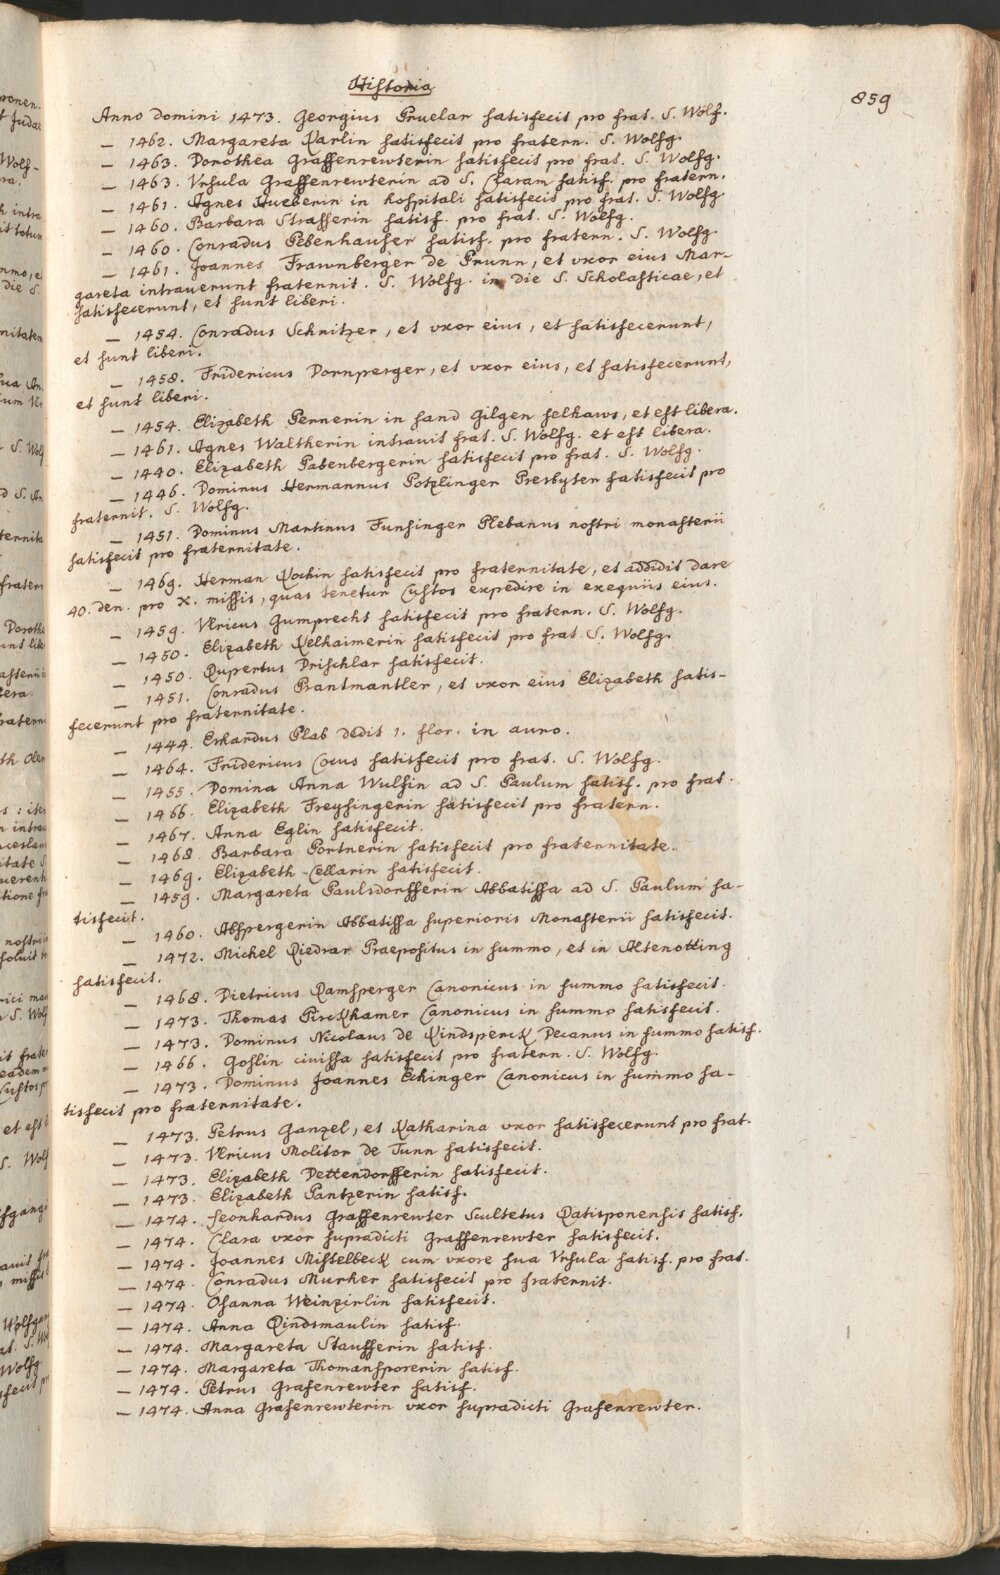 Historia
859
Anno Domini 1473. Georgius Pruelar satisfecit pro frat. S. Wolf.
— 1462. Margareta Karlin satisfecit pro fratern. S. Wolfg.
— 1463. Dorothea Graffenrewterin satisfecit pro frat. S. Wolfg.
— 1463. Vrsula Graffenrewterin ad S. Claram satisf. pro fratern.
— 1461. Agnes Hueberin in hospitali satisfecit pro frat. S. Wolfg.
— 1460. Barbara Strasserin satisf. pro frat. S. Wolfg.
— 1460. Conradus Pebenhauser satisf. pro fratern. S. Wolfg.
— 1461. Joannes Frawnberger de Prunn, et vxor eius Mar-
gareta intrauerunt fraternit. S. Wolfg. in die S. Scholasticae, et
satisfecerunt, et sunt liberi.
— 1454. Conradus Schnitzer, et vxor eius, et satisfecerunt,
et sunt liberi.
— 1458. Fridericus Dornperger, et vxor eius, et satisfecerunt,
et sunt liberi.
— 1454. Elizabeth Pernerin in sand Gilgen selhaws, et est libera.
— 1461. Agnes Waltherin intrauit frat. S. Wolfg. et est libera.
— 1440. Elizabeth Pabenbergerin satisfecit pro frat. S. Wolfg.
— 1446. Dominus Hermannus Potzlinger Presbyter satisfecit pro
fraternit. S. Wolfg.
— 1451. Dominus Martinus Funsinger Plebanus nostri monasterii
satisfecit pro fraternitate.
— 1469. Herman Kochin satisfecit pro fraternitate, et addidit dare
40. den. pro X. missis, quas tenetur Custos expedire in exequiis eius.
— 1459. Vlricus Gumprecht satisfecit pro fratern. S. Wolfg.
— 1450. Elizabeth Kelhaimerin satisfecit pro frat. S. Wolfg.
— 1450. Rupertus Drischlar satisfecit.
— 1451. Conradus Prantmantler, et vxor eius Elizabeth satis-
fecerunt pro fraternitate.
— 1444. Erhardus Plab dedit 1. flor. in auro.
— 1464. Fridericus Cocus satisfecit pro frat. S. Wolfg.
— 1455. Domina Anna Wulfin ad S. Paulum satisf. pro frat.
— 1466. Elizabeth Freysingerin satisfecit pro fratern.
— 1467. Anna Eglin satisfecit.
— 1468. Barbara Portnerin satisfecit pro fraternitate.
— 1469. Elizabeth Cellarin satisfecit.
— 1459. Margareta Paulsdorfferin Abbatissa ad S. Paulum sa-
tisfecit.
— 1460. Abspergerin Abbatissa superioris Monasterii satisfecit.
— 1472. Michel Riedrar Praepositus in summo, et in Altenotting
satisfecit.
— 1468. Dietricus Ramsperger Canonicus in summo satisfecit.
— 1473. Thomas Pirckhamer Canonicus in summo satisfecit.
— 1473. Dominus Nicolaus de Kindsperck Decanus in summo satisf.
— 1466. Goslin civissa satisfecit pro fratern. S. Wolfg.
— 1473. Dominus Joannes Echinger Canonicus in summo sa-
tisfecit pro fraternitate.
— 1473. Petrus Ganzel, et Katharina vxor satisfecerunt pro frat.
— 1473. Vlricus Molitor de Tunn satisfecit.
— 1473. Elizabeth Dettendorfferin satisfecit.
— 1473. Elizabeth Pantzerin satisf.
— 1474. Leonhardus Graffenrewter Scultetus Ratisponensis satisf.
— 1474. Clara vxor supradicti Graffenrewter satisfecit.
— 1474. Joannes Mistelbeck cum vxore sua Vrsula satisf. pro frat.
— 1474. Conradus Murher satisfecit pro fraternit.
— 1474. Osanna Weinzirlin satisfecit.
— 1474. Anna Rindsmaulin satisf.
— 1474. Margareta Staufferin satisf.
— 1474. Margareta Thomansporerin satisf.
— 1474. Petrus Grafenrewter satisf.
— 1474. Anna Grafenrewterin vxor supradicti Grafenrewter.